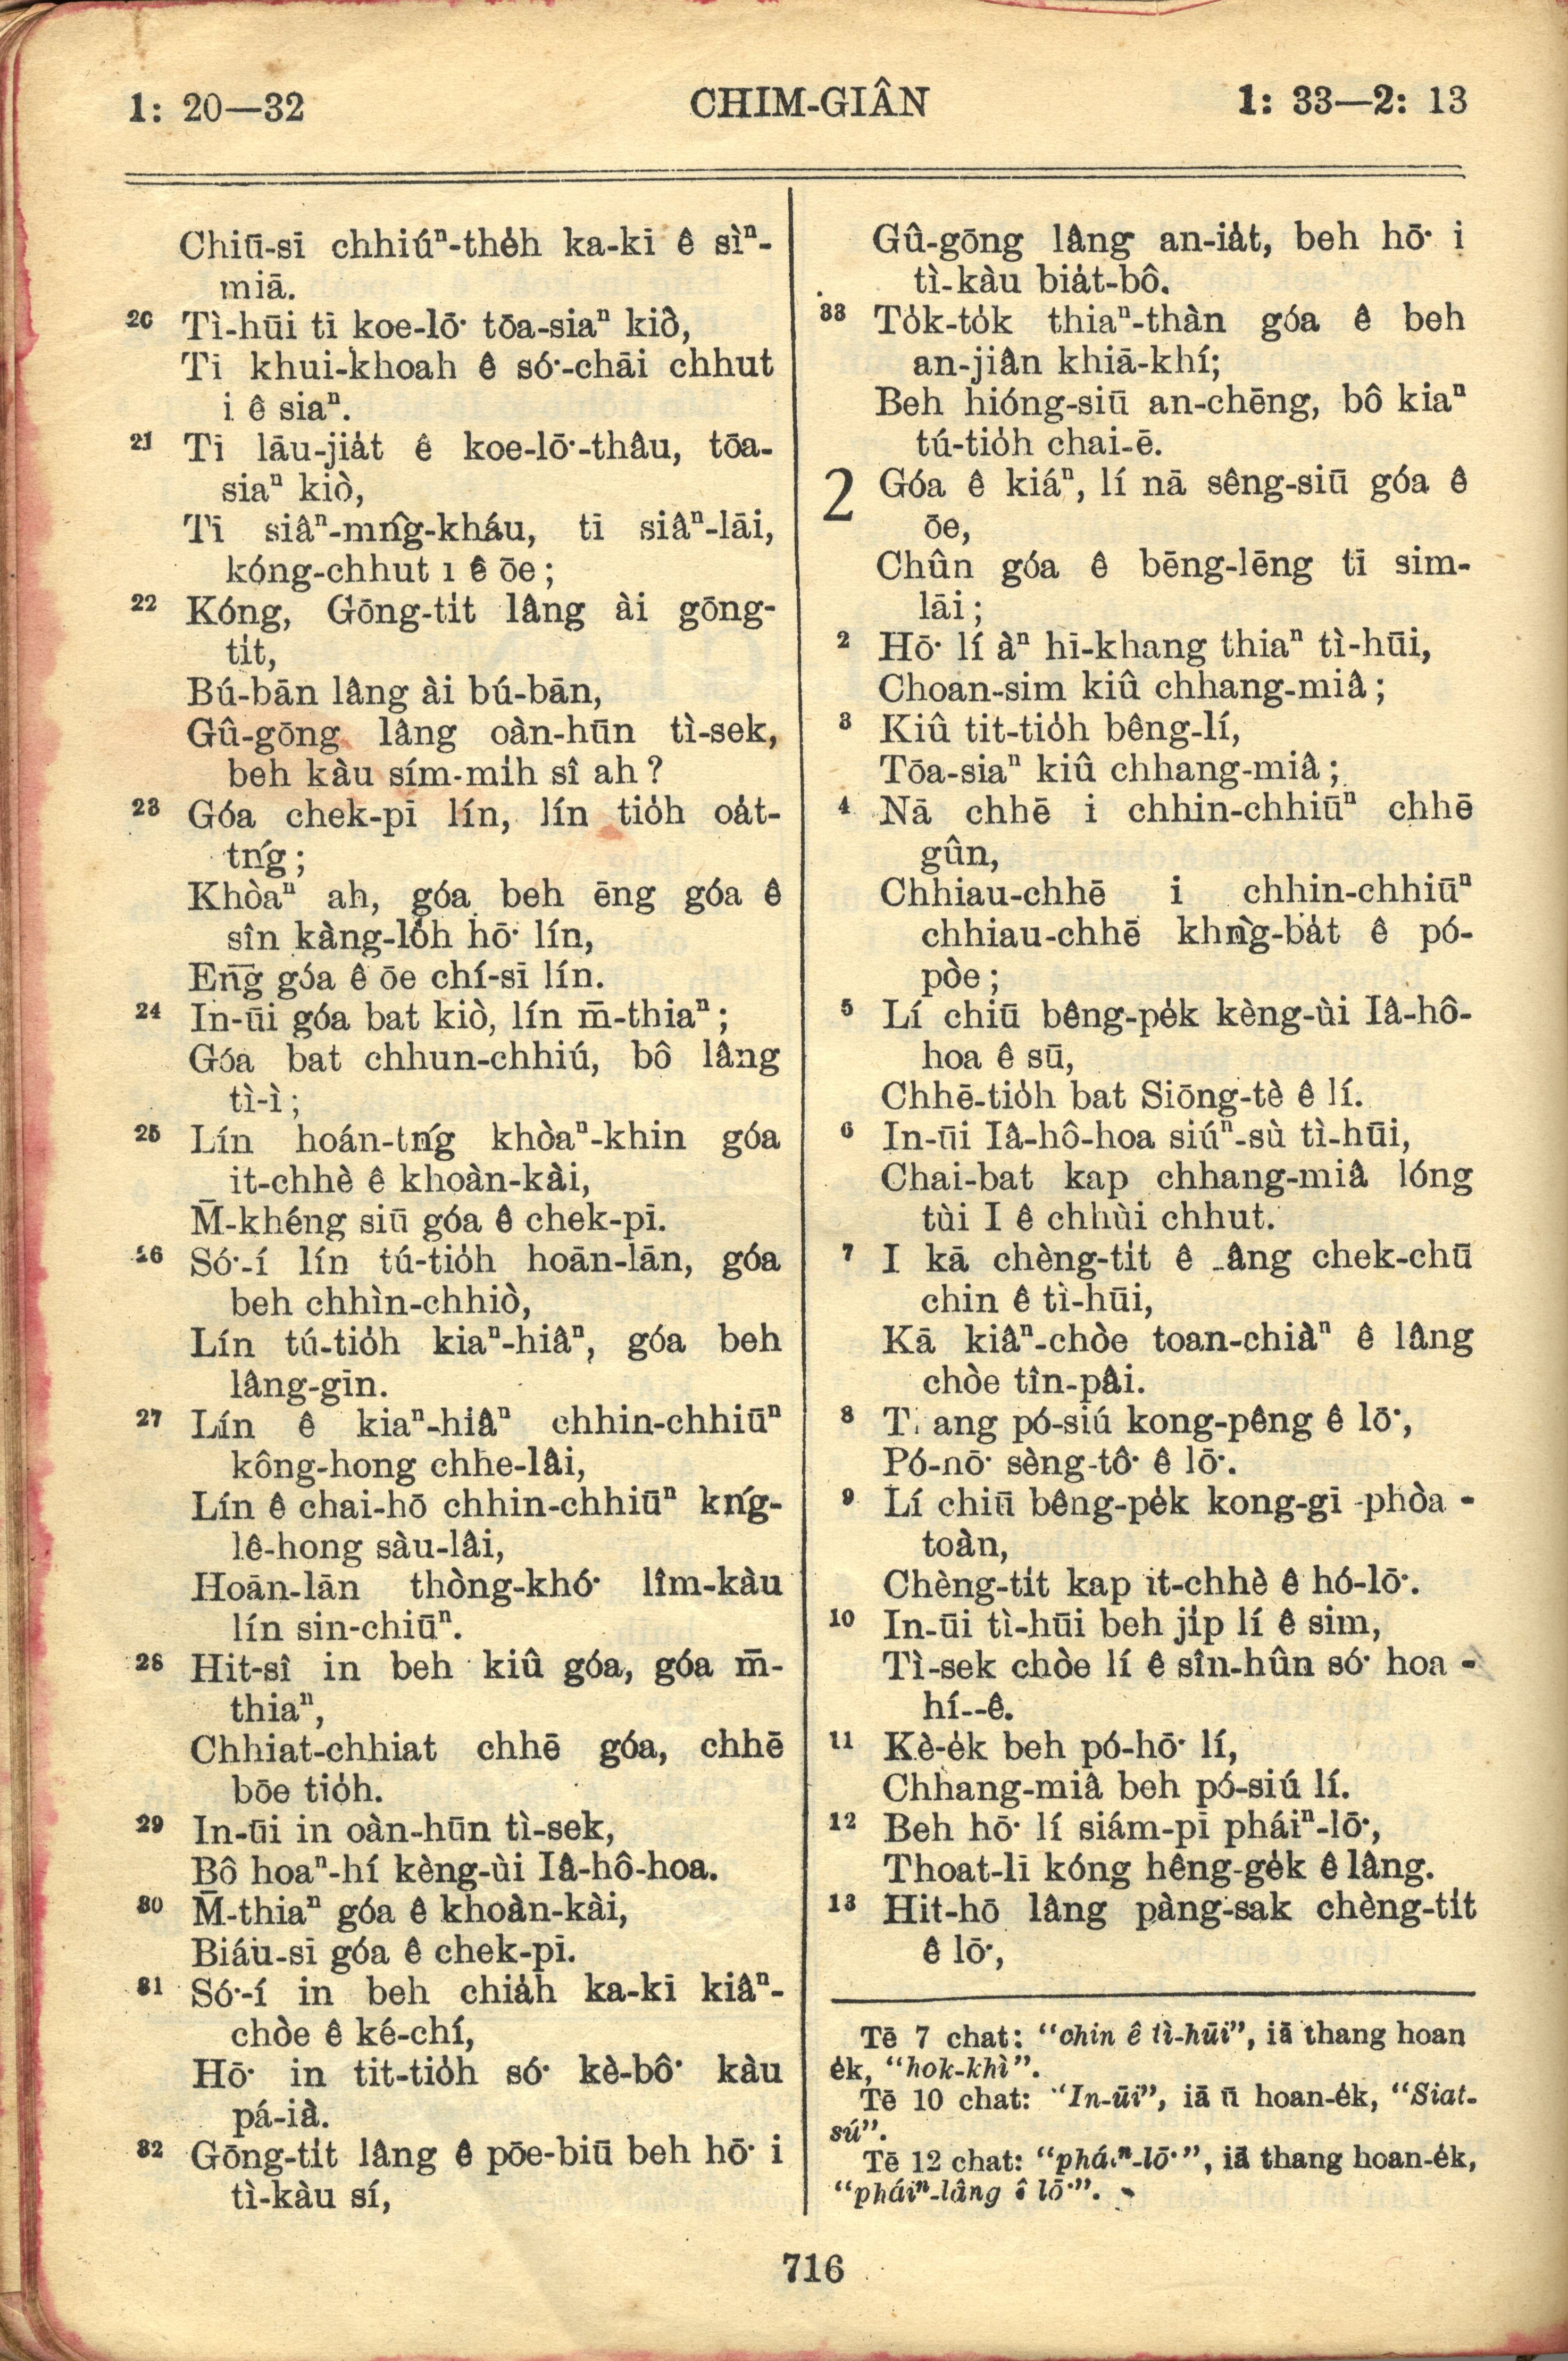 1: 20—32
CHIM-GIÂN
1: 33—2: 13
Chiū-sī chhiúⁿ-the̍h ka-kī ê sìⁿ-
miā.
20 Tì-hūi tī koe-lō͘ tōa-siaⁿ kiò,
Tī khui-khoah ê só͘-chāi chhut
i ê siaⁿ.
21 Tī lāu-jia̍t ê koe-lō͘-thâu, tōa-
siaⁿ kiò,
Tī siâⁿ-mn̂g-kháu, tī siâⁿ-lāi,
kóng-chhut i ê ōe;
22 Kóng, Gōng-ti̍t lâng ài gōng-
ti̍t,
Bú-bān lâng ài bú-bān,
Gû-gōng lâng oàn-hūn tì-sek,
beh kàu sím-mih sî ah?
23 Góa chek-pī lín, lín tio̍h oa̍t-
tńg;
Khòaⁿ ah, góa beh ēng góa ê
sîn kàng-lo̍h hō͘ lín,
Eng góa ê ōe chí-sī lín.
24 In-ūi góa bat kiò, lín m̄-thiaⁿ;
Góa bat chhun-chhiú, bô lâng
tì-ì;
25 Lín hoán-tńg khòaⁿ-khin góa
it-chhè ê khoàn-kài,
M̄-khéng siū góa ê chek-pī.
26 Só͘-í lín tú-tio̍h hoān-lān, góa
beh chhìn-chhiò,
Lín tú-tio̍h kiaⁿ-hiâⁿ, góa beh
lâng-gīn.
27 Lín ê kiaⁿ-hiâⁿ chhin-chhiūⁿ
kông-hong chhe-lâi,
Lín ê chai-hō chhin-chhiūⁿ kńg-
lê-hong sàu-lâi,
Hoān-lān thòng-khó͘ lîm-kàu
lín sin-chiūⁿ.
28 Hit-sî in beh kiû góa, góa m̄-
thiaⁿ,
Chhiat-chhiat chhē góa, chhē
bōe tio̍h.
29 In-ūi in oàn-hūn tì-sek,
Bô hoaⁿ-hí kèng-ùi Iâ-hô-hoa.
30 M̄-thiaⁿ góa ê khoàn-kài,
Biáu-sī góa ê chek-pī.
31 Só͘-í in beh chia̍h ka-kī kiâⁿ-
chòe ê ké-chí,
Hō͘ in tit-tio̍h só͘ kè-bô͘ kàu
pá-ià.
32 Gōng-ti̍t lâng ê pōe-biū beh hō͘ i
tì-kàu sí,
Gû-gōng lâng an-ia̍t, beh hō͘ i
tì-kàu bia̍t-bô.
33 To̍k-to̍k thiaⁿ-thàn góa ê beh
an-jiân khiā-khí;
Beh hióng-siū an-chēng, bô kiaⁿ
tú-tio̍h chai-ē.
2 Góa ê kiáⁿ, lí nā sêng-siū góa ê
ōe,
Chûn góa ê bēng-lēng tī sim-
lāi;
2 Hō͘ lí àⁿ hī-khang thiaⁿ tì-hūi,
Choan-sim kiû chhang-miâ;
3 Kiû tit-tio̍h bêng-lí,
Tōa-siaⁿ kiû chhang-miâ;
4 Nā chhē i chhin-chhiūⁿ chhē
gûn,
Chhiau-chhē i chhin-chhiūⁿ
chhiau-chhē khǹg-ba̍t ê pó-
pòe;
5 Lí chiū bêng-pe̍k kèng-ùi Iâ-hô-
hoa ê sū,
Chhē-tio̍h bat Siōng-tè ê lí.
6 In-ūi Iâ-hô-hoa siúⁿ-sù tì-hūi,
Chai-bat kap chhang-miâ lóng
tùi I ê chhùi chhut.
7 I kā chèng-ti̍t ê âng chek-chū
chin ê tì-hūi,
Kā kiâⁿ-chòe toan-chiàⁿ ê lâng
chòe tîn-pâi.
8 ang pó-siú kong-pêng ê lō͘,
Pó-nō͘ sèng-tô͘ ê lō͘.
9 Lí chiū bêng-pe̍k kong-gī phòa-
toàn,
Chèng-ti̍t kap it-chhè ê hó-lō͘.
10 In-ūi tì-hūi beh ji̍p lí ê sim,
Tì-sek chòe lí ê sîn-hûn só͘ hoa-
hí--ê.
11 Kè-e̍k beh pó-hō͘ lí,
Chhang-miâ beh pó-siú lí.
12 Beh hō͘ lí siám-pī pháiⁿ-lō͘,
Thoat-lī kóng hêng-ge̍k ê lâng.
13 Hit-hō lâng pàng-sak chèng-ti̍t
ê lō͘,
Tē 7 chat: “chin ê tì-hūi”, iā thang hoan
e̍k, “hok-khì”.
Tē 10 chat: “In-ūi”, iā ū hoan-e̍k, “Siat-
sú”.
Tē 12 chat: “pháiⁿ-lō͘”, iā thang hoan-e̍k,
“pháiⁿ-lâng ê lō͘”.
716